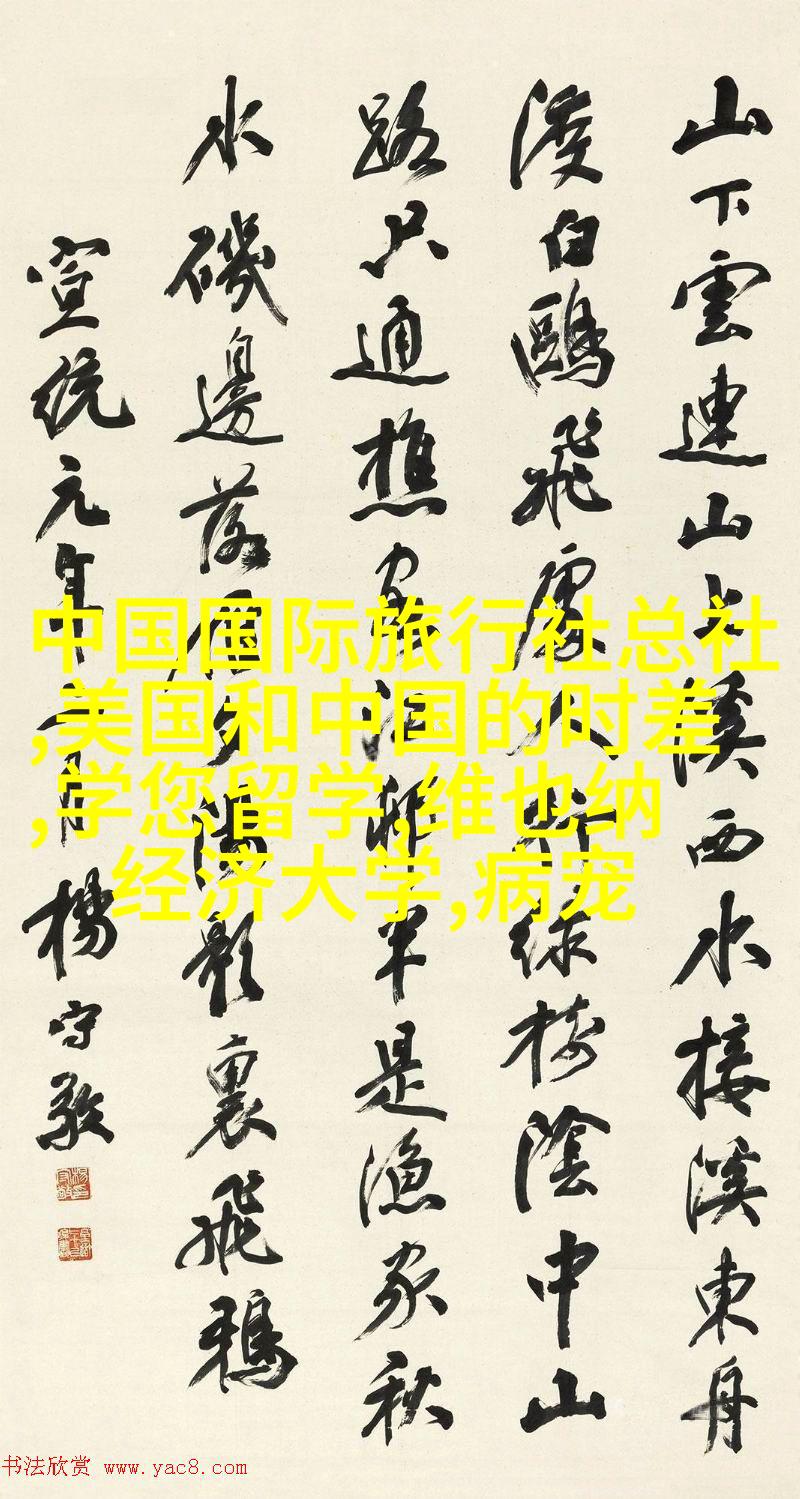 山下雲連山上溪西水接溪東舟
渡白鷗飛處人行綠樹陰中山
路只通樵客江邨半是漁家秋
水磯邊落雁夕陽影裏飛鴉
宣統元年月楊守敬
中国国际旅行社总社
,美国和中国的时差
,学您留学,维也纳
经济大学,病宠
书法欣赏 www.yac8.com